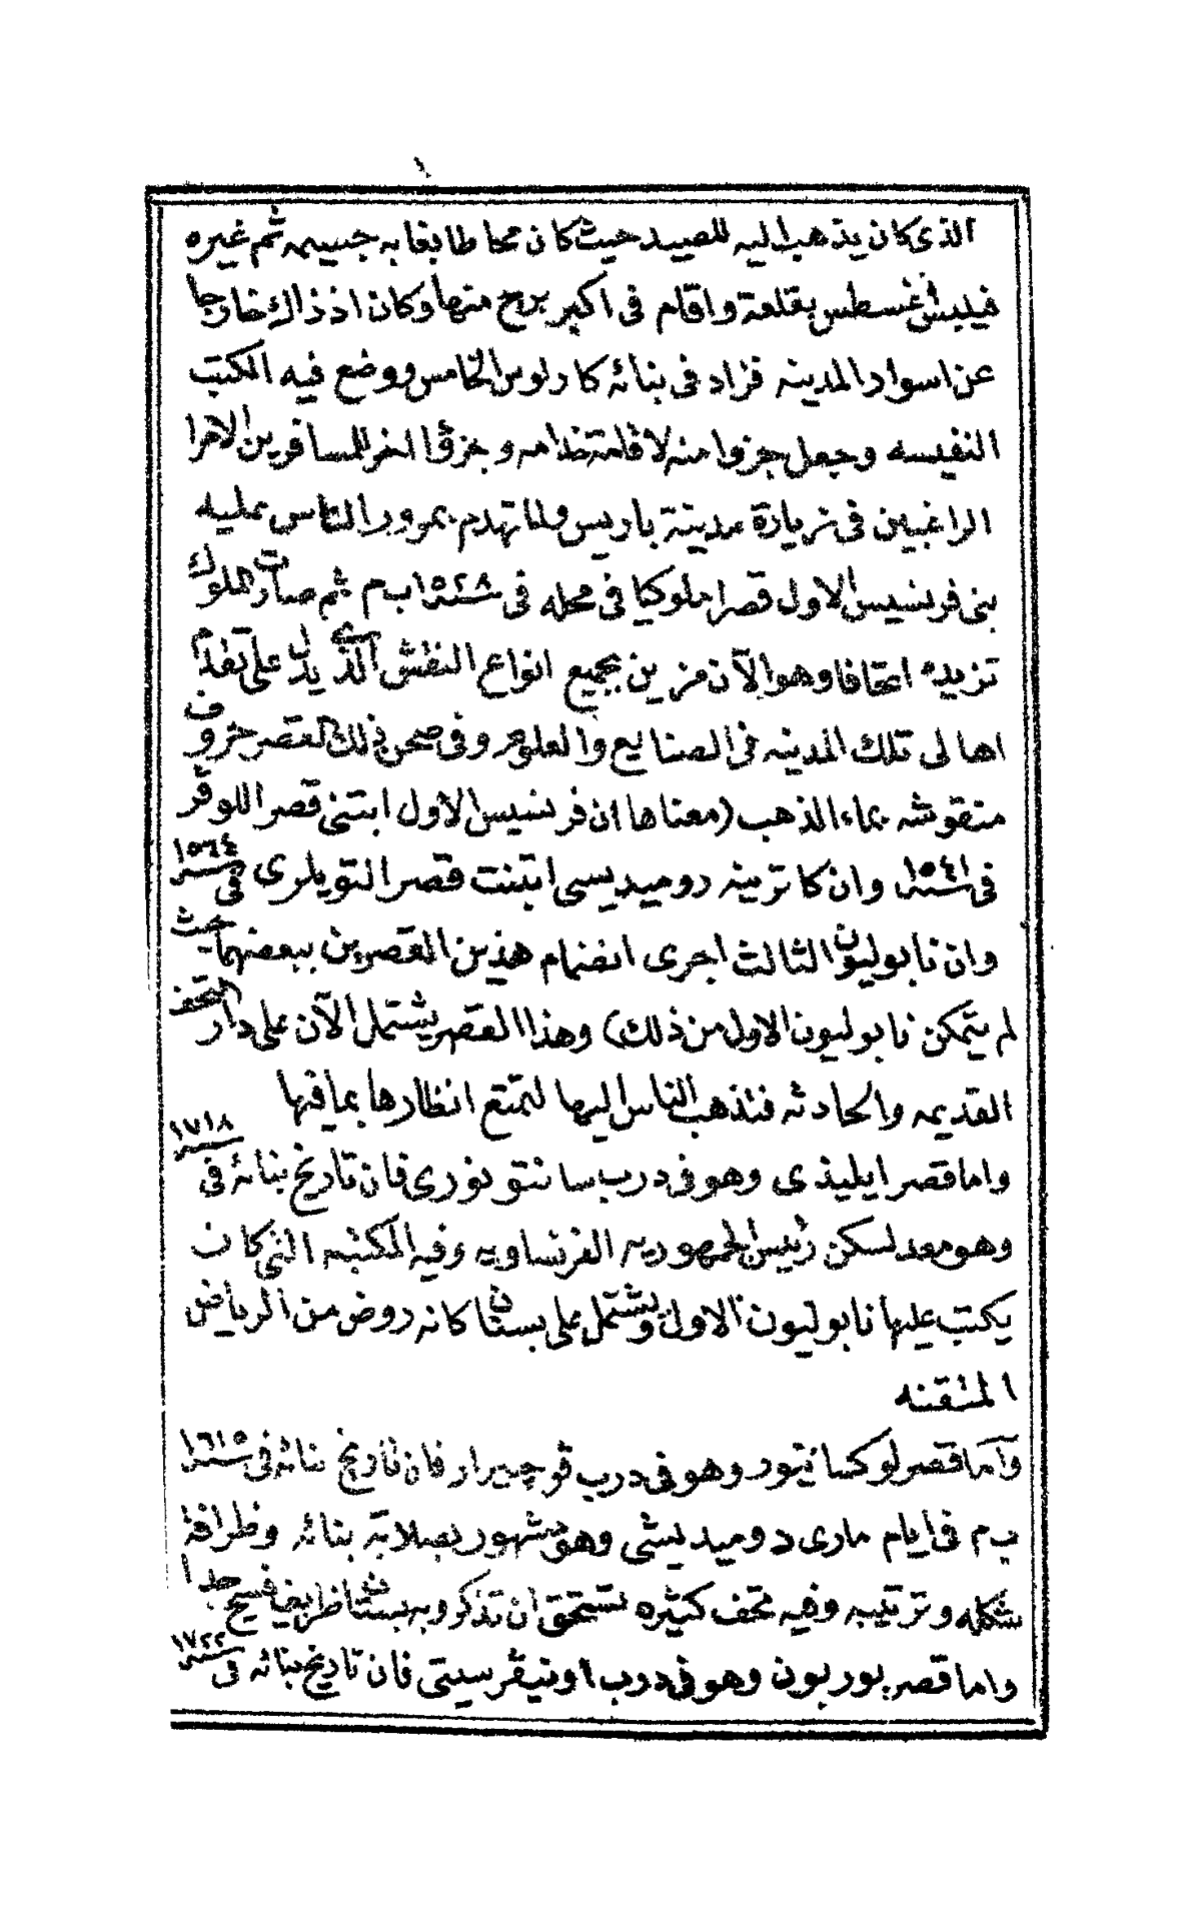 الذى كان يذهب اليه للصيد حيث كان محاطا بغابه جسيمه ثم غيره
فيلبش غسطس بقلعة واقام فى اكبر برج منها وكان اذ ذاك خارجا
عن اسوار المدينه فزاد فى بنائه كارلوس الخامس ووضع فيه الكتب
النفيسه وجعل جزوا منه لاقامة خدامه وجزؤا اخر للمسافرين الامرا
الراغبين فى زيارة مدينة باريس ولما تهدم بمرور الناس عليه
بنى فرنسيس الاول قصرا ملوكيا فى محله فى سنة ١٥٢٨ ب م ثم صارت الملوك
تزيده اتحافا وهو الآن مزين بجميع انواع النقش الذي يدل على تقدم
اهالى تلك المدينه فى الصنايع والعلوم وفى صحن ذلك القصر حروف
منقوشه بماء الذهب (معناها ان فرنسيس الاول ابتنى قصر اللوڤر
فى سنة ١٥٤١ وان كاترينه دوميديسى ابتنت قصر التويلرى فى سنة ١٥٦٤
وان نابوليون الثالث اجرى انضمام هذين القصرين ببعضهما حيث
لم يتمكن نابوليون الاول من ذلك) وهذا القصر يشتمل الآن على دار التحف
القديمه والحادثه فتذهب الناس اليها لتمتع انظارها بما فيها
واما قصر ايليذى وهو فى درب سانتو نورى فان تاريخ بنائه فى سنة ١٧١٨
وهو معد لسكن رئيس الجمهوريه الفرنساويه وفيه المكتبه التى كان
يكتب عليها نابوليون الاول ويشتمل على بستان كانه روض من الرياض
المتقنه
واما قصر لوكسانبور وهو فى درب ڤوچيرار فان تاريخ بنائه فى سنة ١٦١٥
ب م فى ايام مارى دوميديشى وهو مشهور بصلابة بنائه وظرافة
شكله وترتيبه وفيه تحف كثيره تستحق ان تذكر وبه بستان ظريف فسيح جدا
واما قصر بوربون وهو فى درب اونيڤرسيتى فان تاريخ بنائه فى سنة ١٧٢٢